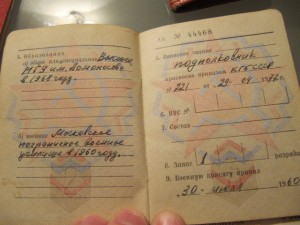 4. Образование:
а) общее и специальное Высшее,
МГУ им. Ломоносова
в 1968 году.
б) военное Московское
пограничное военное
училище в 1960 году.
№ 44468
5. Воинское звание
подполковник
присвоено приказом КГБ СССР
№ 221 от 29. 04 1976 г.
6. ВУС №
7. Состав
8. Запас 1 разряда
9. Военную присягу принял
30. июля 1960